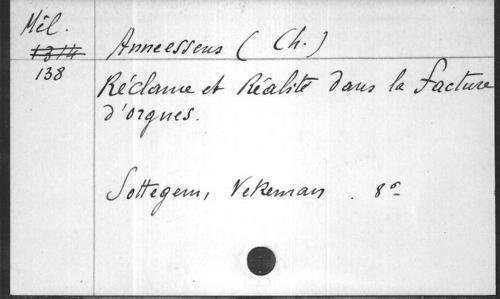 Mél.
1314
138
Anneessens (Ch.)
Réclame et Réalité dans la facture
d'orgues.
Sottegem, Vekeman. 8°